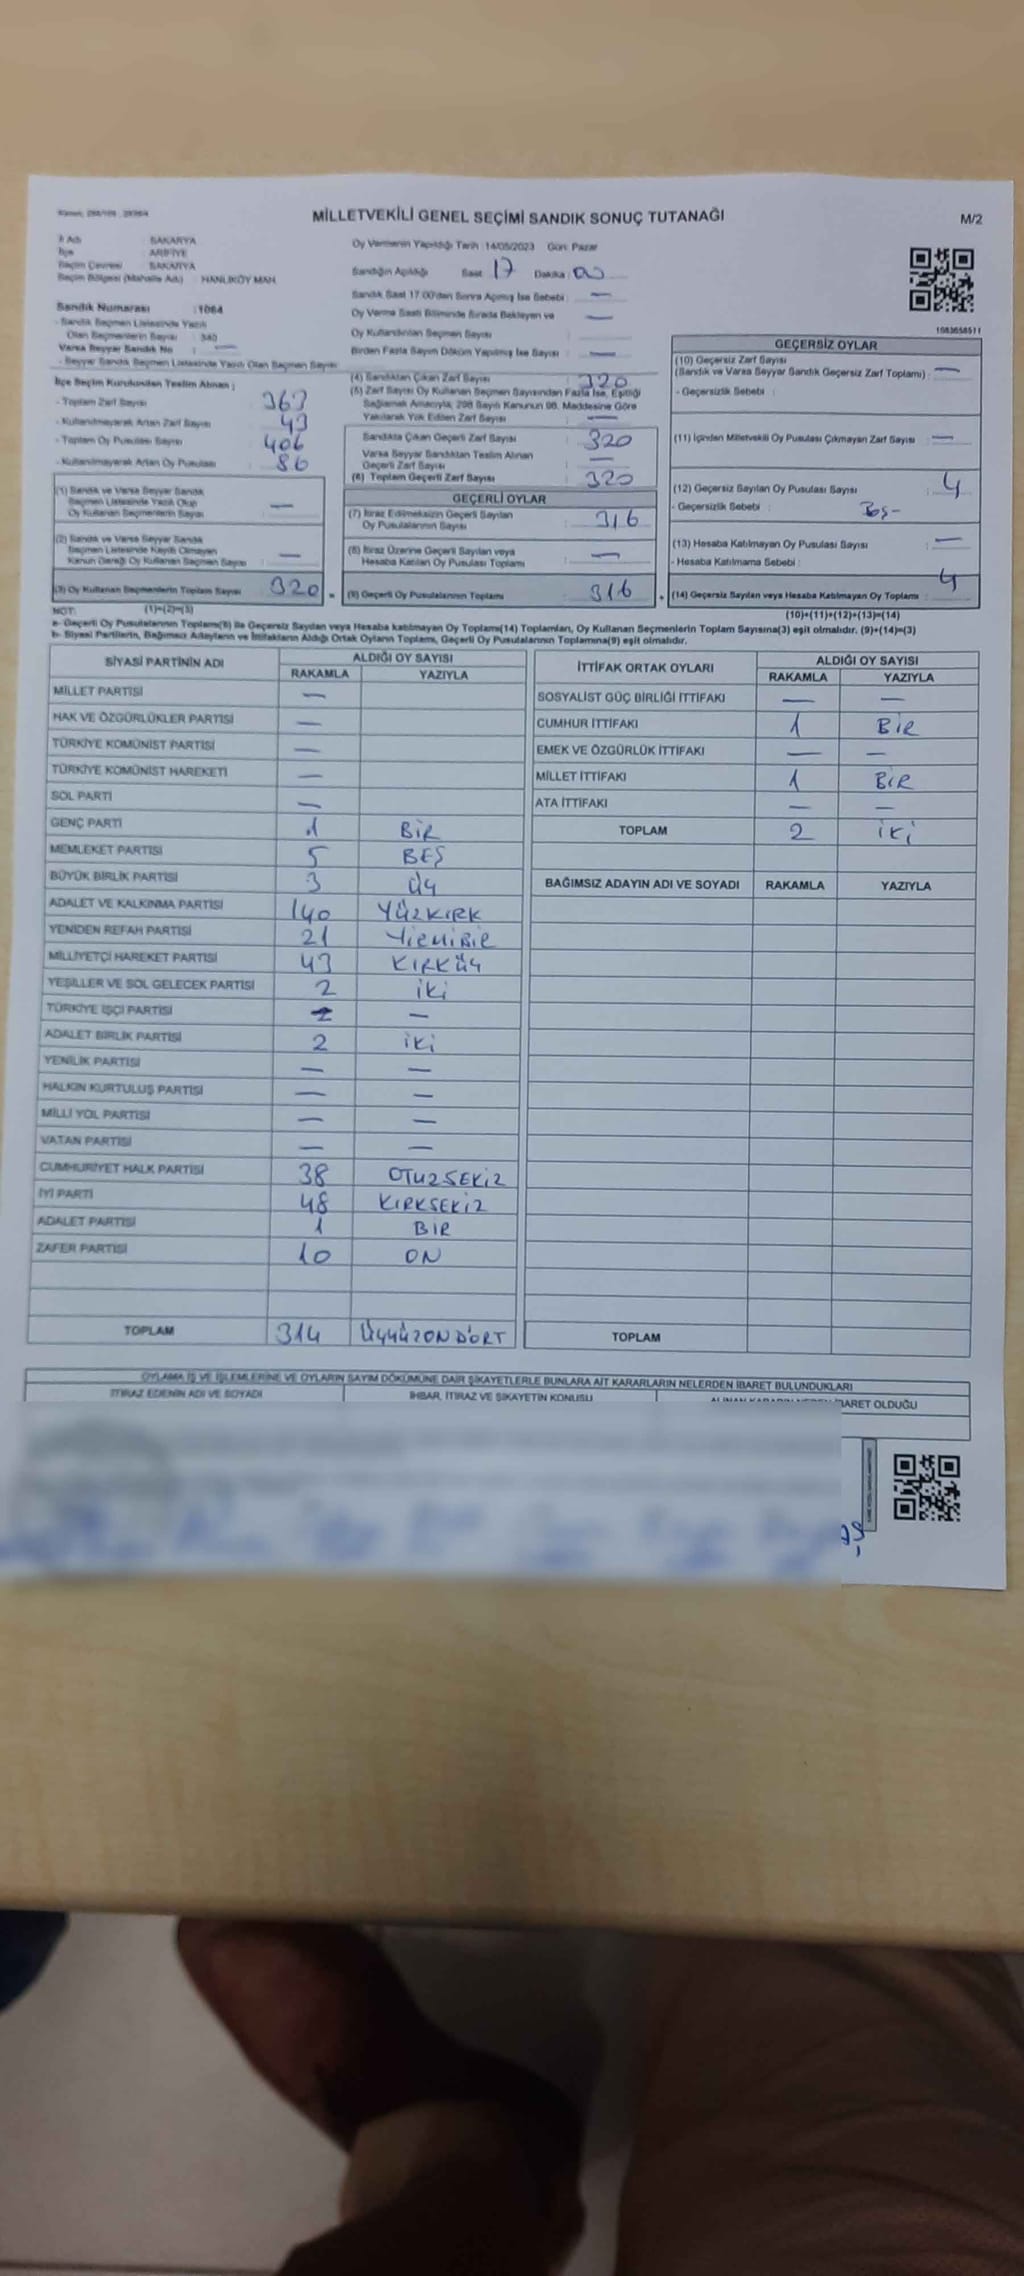 MİLLETVEKİLİ GENEL SEÇİMİ SANDIK SONUÇ TUTANAĞI
M/2
İl Adı : SAKARYA
İlçe : ARİFİYE
Seçim Çevresi : SAKARYA
Seçim Bölgesi (Mahalle Adı) : HANLIKÖY MAH.
Sandık Numarası : 1064
- Sandık Seçmen Listesinde Yazılı
Olan Seçmenlerin Sayısı : 340
Varsa Seyyar Sandık No : —
- Seyyar Sandık Seçmen Listesinde Yazılı Olan Seçmen Sayısı
İlçe Seçim Kurulundan Teslim Alınan ;
- Toplam Zarf Sayısı 363
- Kullanılmayarak Artan Zarf Sayısı 43
- Toplam Oy Pusulası Sayısı 406
- Kullanılmayarak Artan Oy Pusulası 86
(1) Sandık ve Varsa Seyyar Sandık
Seçmen Listesinde Yazılı Olup
Oy Kullanan Seçmenlerin Sayısı —
(2) Sandık ve Varsa Seyyar Sandık
Seçmen Listesinde Kayıtlı Olmayan
Kanun Gereği Oy Kullanan Seçmen Sayısı —
(3) Oy Kullanan Seçmenlerin Toplam Sayısı 320
Oy Vermenin Yapıldığı Tarih : 14/05/2023 Gün: Pazar
Sandığın Açıldığı Saat 17 Dakika : 00
Sandık Saat 17:00'dan Sonra Açılmış İse Sebebi : —
Oy Verme Saati Bitiminde Sırada Bekleyen ve —
Oy Kullandırılan Seçmen Sayısı
Birden Fazla Sayım Döküm Yapılmış İse Sayısı —
(4) Sandıktan Çıkan Zarf Sayısı : 320
(5) Zarf Sayısı Oy Kullanan Seçmen Sayısından Fazla İse, Eşitliği
Sağlamak Amacıyla, 298 Sayılı Kanunun 98. Maddesine Göre
Yakılarak Yok Edilen Zarf Sayısı —
Sandıkta Çıkan Geçerli Zarf Sayısı : 320
Varsa Seyyar Sandıktan Teslim Alınan
Geçerli Zarf Sayısı —
(6) Toplam Geçerli Zarf Sayısı : 320
GEÇERLİ OYLAR
(7) İtiraz Edilmeksizin Geçerli Sayılan
Oy Pusulalarının Sayısı : 316
(8) İtiraz Üzerine Geçerli Sayılan veya
Hesaba Katılan Oy Pusulası Toplamı : —
(9) Geçerli Oy Pusulalarının Toplamı : 316
1083658511
GEÇERSİZ OYLAR
(10) Geçersiz Zarf Sayısı
(Sandık ve Varsa Seyyar Sandık Geçersiz Zarf Toplamı) : —
- Geçersizlik Sebebi :
(11) İçinden Milletvekili Oy Pusulası Çıkmayan Zarf Sayısı : —
(12) Geçersiz Sayılan Oy Pusulası Sayısı : 4
- Geçersizlik Sebebi : Boş-
(13) Hesaba Katılmayan Oy Pusulası Sayısı : —
- Hesaba Katılmama Sebebi :
(14) Geçersiz Sayılan veya Hesaba Katılmayan Oy Toplamı : 4
NOT: (1)+(2)=(3)
(10)+(11)+(12)+(13)=(14)
a- Geçerli Oy Pusulalarının Toplamı(9) ile Geçersiz Sayılan veya Hesaba katılmayan Oy Toplamı(14) Toplamları, Oy Kullanan Seçmenlerin Toplam Sayısına(3) eşit olmalıdır. (9)+(14)=(3)
b- Siyasi Partilerin, Bağımsız Adayların ve İttifakların Aldığı Ortak Oyların Toplamı, Geçerli Oy Pusulalarının Toplamına(9) eşit olmalıdır.
SİYASİ PARTİNİN ADI ALDIĞI OY SAYISI
RAKAMLA YAZIYLA
MİLLET PARTİSİ —
HAK VE ÖZGÜRLÜKLER PARTİSİ —
TÜRKİYE KOMÜNİST PARTİSİ —
TÜRKİYE KOMÜNİST HAREKETİ —
SOL PARTİ —
GENÇ PARTİ 1 BİR
MEMLEKET PARTİSİ 5 BEŞ
BÜYÜK BİRLİK PARTİSİ 3 Üç
ADALET VE KALKINMA PARTİSİ 140 YÜZKIRK
YENİDEN REFAH PARTİSİ 21 YİRMİBİR
MİLLİYETÇİ HAREKET PARTİSİ 43 KIRKÜç
YEŞİLLER VE SOL GELECEK PARTİSİ 2 iki
TÜRKİYE İŞÇİ PARTİSİ —
ADALET BİRLİK PARTİSİ 2 iki
YENİLİK PARTİSİ — —
HALKIN KURTULUŞ PARTİSİ — —
MİLLİ YOL PARTİSİ — —
VATAN PARTİSİ — —
CUMHURİYET HALK PARTİSİ 38 OTUZSEKİZ
İYİ PARTİ 48 KIRKSEKİZ
ADALET PARTİSİ 1 BİR
ZAFER PARTİSİ 10 ON
TOPLAM 314 ÜçYÜZONDÖRT
İTTİFAK ORTAK OYLARI ALDIĞI OY SAYISI
RAKAMLA YAZIYLA
SOSYALİST GÜÇ BİRLİĞİ İTTİFAKI — —
CUMHUR İTTİFAKI 1 BİR
EMEK VE ÖZGÜRLÜK İTTİFAKI — —
MİLLET İTTİFAKI 1 BİR
ATA İTTİFAKI — —
TOPLAM 2 iki
BAĞIMSIZ ADAYIN ADI VE SOYADI RAKAMLA YAZIYLA
TOPLAM
OYLAMA İŞ VE İŞLEMLERİNE VE OYLARIN SAYIM DÖKÜMÜNE DAİR ŞİKAYETLERLE BUNLARA AİT KARARLARIN NELERDEN İBARET BULUNDUKLARI
İTİRAZ EDENİN ADI VE SOYADI
İHBAR, İTİRAZ VE ŞİKAYETİN KONUSU
İBARET OLDUĞU